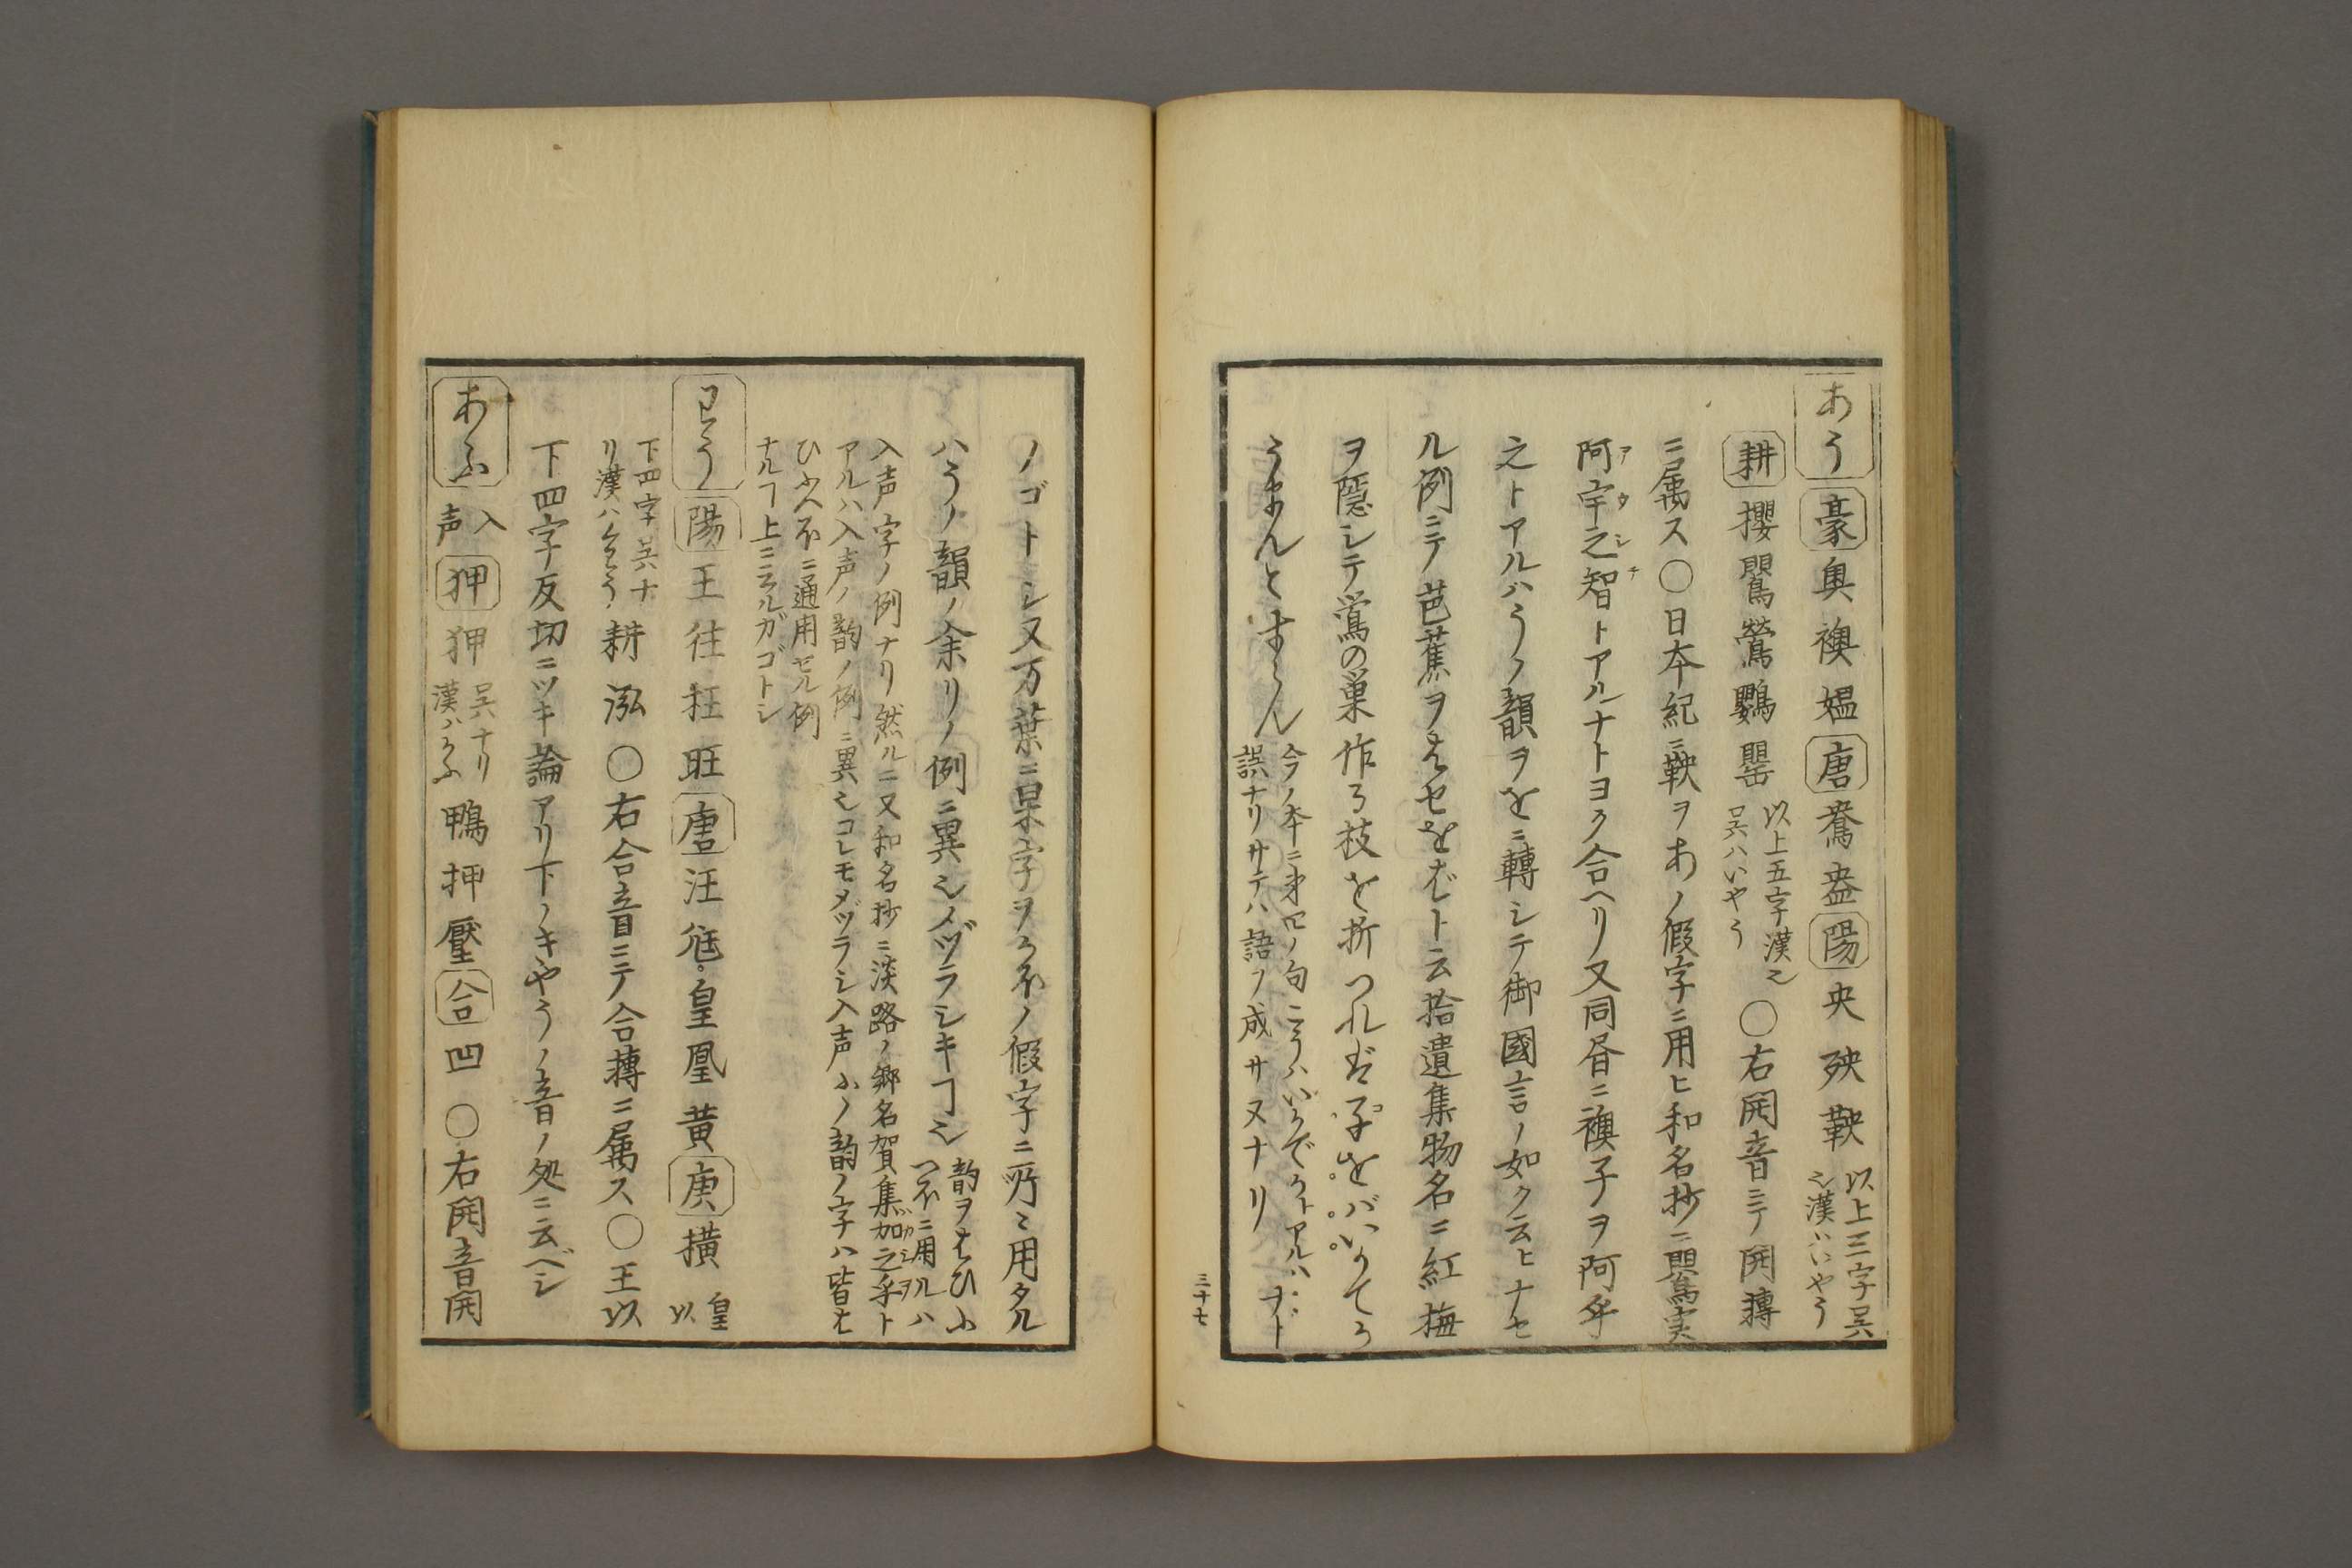 あう 豪 奥 襖 媼 唐 鴦 盎 陽 央 殃 鞅 以上三字呉
之漢ハいやう
耕 攖 鸎 鶯 鸚 罌 以上五字漢之
呉ハいやう
〇右開音ニテ開轉
ニ属ス〇日本紀ニ鞅ヲあノ假字ニ用ヒ和名抄ニ罌実
阿宇之智トアルナトヨク合ヘリ又同昏ニ襖子ヲ阿乎
アウシチ
之トアルハうノ韻ヲをニ轉シテ御國言ノ如ク云ヒナセ
ル例ニテ芭蕉ヲはせをばトニ云拾遺集物名ニ紅梅
ヲ隠シテ鶯の巣作る枝を折つれば子をバいかでか
うまんとすらん
今ノ本ニ才四ノ句こうハいかでかトアルハ
誤ナリサテハ語ヲ成サヌナリ
三十七
ノゴトシ又万葉ニ杲字ヲかほノ假字ニ所々用タル
ハうノ韻ノ余リノ例ニ異シメヅラシキヿ之
韵ヲはひふ
つほニ用ルハ
入声字ノ例ナリ然ルニ又和名抄ニ淡路ノ郷名賀集加之乎ト
アルハ入声ノ韵ノ例ニ異之コレモメヅラシ入声ふノ韵ノ字ハ皆は
ひふへほニ通用セル例
ナルヿ上ニ云ルガゴトシ
わう 陽 王 往 枉 旺 唐 汪 尩 皇 凰 黄 庚 横 皇
以
下四字呉ナ
リ漢ハくわう
耕 泓 〇右合音ニテ合轉ニ属ス〇王以
下四字反切ニツキ論アリ下ノきやうノ音ノ処ニ云ベシ
あふ 入
声
狎 狎 呉ナリ
漢ハかふ
鴨 押 壓 合 凹 〇右開音開